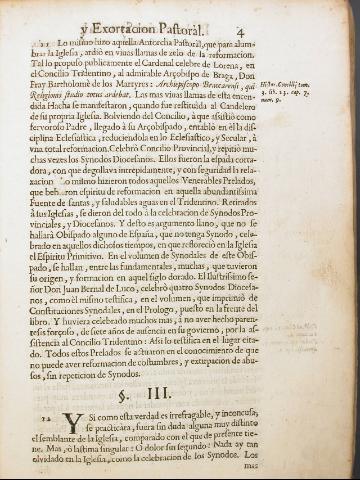 y Exortacion Pastoral. 4
11 Lo mismo hizo aquella Antorcha Pastoral, que para alum-
brar la Iglesia, ardiò en viuas llamas de zelo de la reformacion.
Tal lo propuso publicamente el Cardenal celebre de Lorena, en
el Concilio Tridentino, al admirable Arçobispo de Braga, Don
Fray Bartholomè de los Martyres: Archiepiscopo Bracarensi, qui
Religionis studio totus ardebat. Las mas viuas llamas de esta encen-
dida Hacha se manifestaron, quando fue restituida al Candelero
de su propria Iglesia. Bolviendo del Concilio, à que assistiò como
fervoroso Padre, llegado à su Arçobispado, entablò en èl la dis-
ciplina Eclesiastica, reduciendola en lo Eclesiastico, y Secular, à
vna total reformacion. Celebrò Concilio Provincial, y repitiò mu-
chas vezes los Synodos Diocesanos. Ellos fueron la espada corta-
dora, con que degollava intrepidamente, y con seguridad la rela-
xacion Lo mismo hizieron todos aquellos Venerables Prelados,
que bebieron espiritu de reformacion en aquella abundantissima
Fuente de santas, y saludables aguas en el Tridentino. Retirados
à sus Iglesias, se dieron del todo à la celebracion de Synodos Pro-
vinciales, y Diocesanos. Y desto es argumento llano, que no se
hallarà Obispado alguno de España, que no tenga Synodo, cele-
brado en aquellos dichosos tiempos, en que refloreciò en la Iglesia
el Espiritu Primitivo. En el volumen de Synodales de este Obis-
pado, se hallan, entre las fundamentales, muchas, que tuvieron
su origen, y formacion en aquel siglo dorado. El Ilustrissimo se-
ñor Don Juan Bernal de Luco, celebrò quatro Synodos Diocesa-
nos, como èl mismo testifica, en el volumen, que imprimiò de
Constituciones Synodales, en el Prologo, puesto en la frente del
libro. Y huviera celebrado muchos mas, à no aver hecho paren-
tesis forçoso, de siete años de ausencia en su govierno, por la as-
sistencia al Concilio Tridentino: Assi lo testifica en el lugar cita-
do. Todos estos Prelados se afirmaron en el conocimiento de que
no puede aver reformacion de costumbres, y extirpacion de abu-
sos, sin repeticion de Synodos.
§. III.
12 Y Si como esta verdad es irrefragable, y inconcusa,
se practicàra, fuera sin duda alguna muy distinto
el semblante de la Iglesia, comparado con el que de presente tie-
ne. Mas, ò lastima singular: O dolor sin segundo: Nada ay tan
olvidado en la Iglesia, como la celebracion de los Synodos. Los
mas
Histor. Concilij tom.
3. lib. 23. cap. 7.
num. 9.